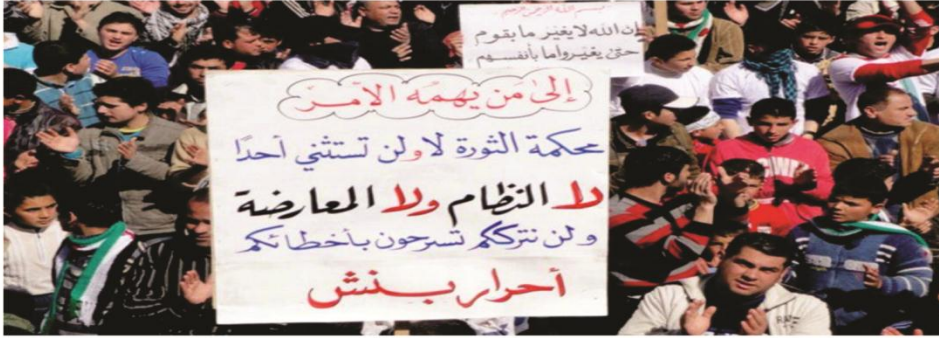 بسم الله الرحمن الرحيم
إن الله لا يغير ما بقوم
حتى يغيروا ما بأنفسهم
إلى من يهمه الأمر
محكمة الثورة لا ولن تستثني أحدًا
لا النظام ولا المعارضة
ولن نترككم تسرحون بأخطائكم
أحرار بنش